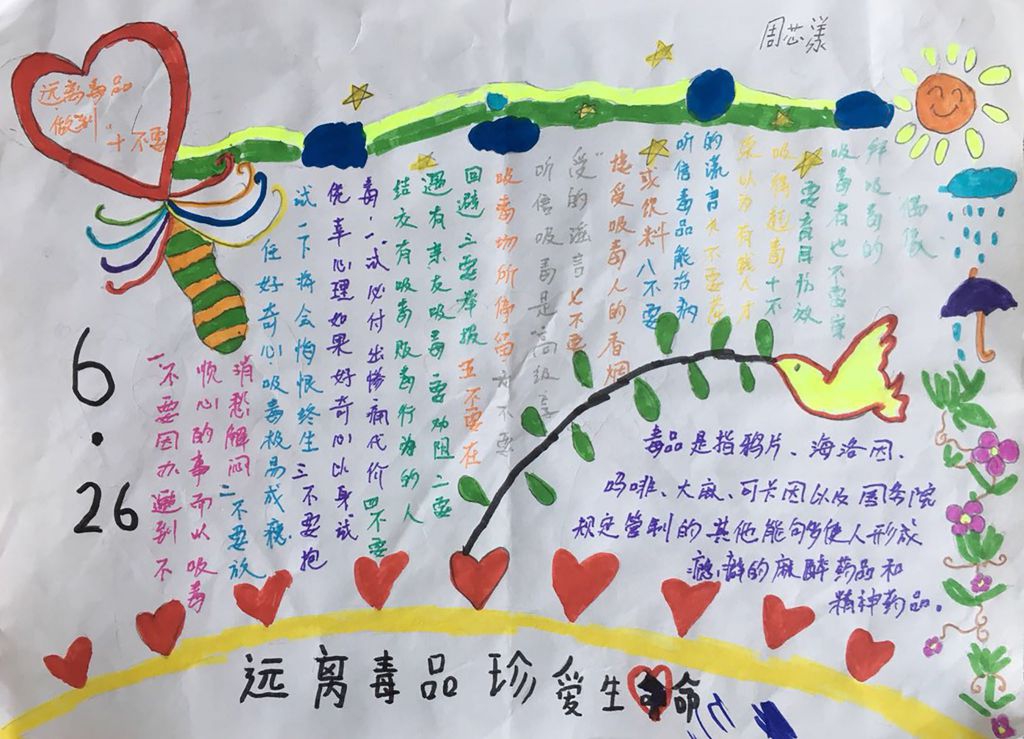 周芯漾
远离毒品
做到
"十不要
6.26
一不要因办遇到不
顺心的事而以吸毒
消愁解闷 二不要放
任好奇心.吸毒极易成瘾.
试一下将会悔恨终生 三不要抱
侥幸心理如果好奇心以身试
毒,一试必付出惨痛代价 四不要
结交有吸毒贩毒行为的人
遇有亲友吸毒一要劝阻二要
回避 三要举报 五不要在
吸毒场所停留 六不要
听信吸毒是高级享
受"的谣言 七不要
接受吸毒人的香烟
或饮料 八不要
听信毒品能治病
的谎言 九不要
以为有钱人才
吸得起毒 十不
要盲目仿效
吸毒者也不要崇
拜吸毒的
偶像
毒品是指鸦片、海洛因.
吗啡、大麻、可卡因以及国务院
规定管制的其他能够使人形成
瘾癖的麻醉药品和
精神药品.
远离毒品珍爱生命